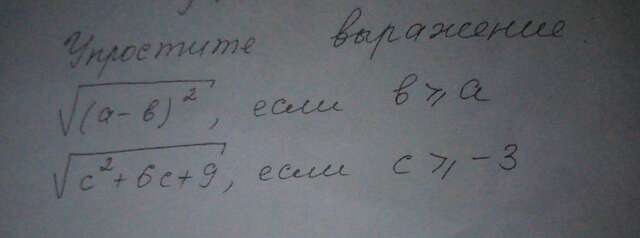 Упростите выражение
√(a-в)², если в ⩾ a
√c²+6c+9, если c ⩾ -3